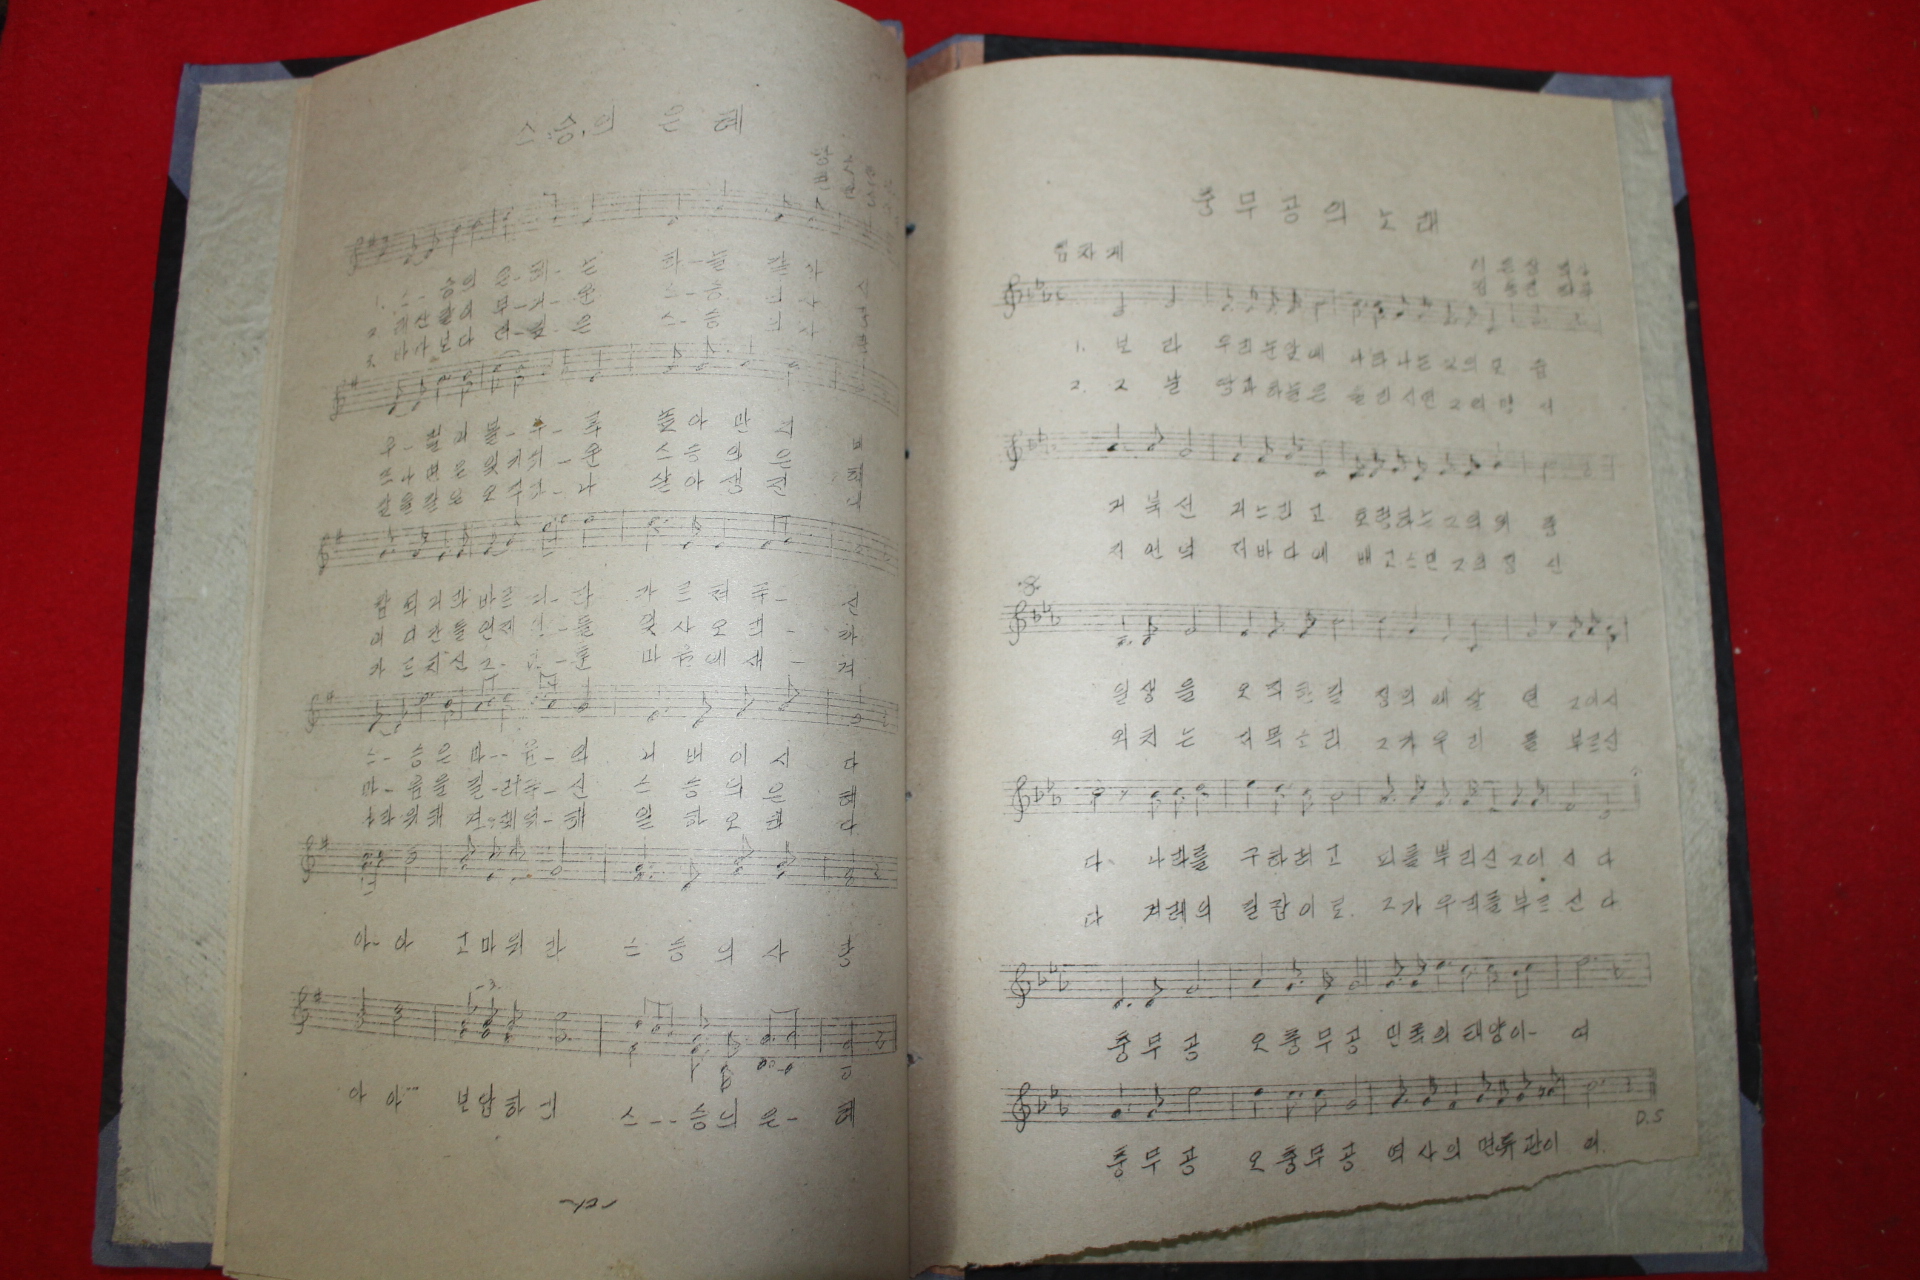 스승의 은혜
1. 스-승의 은-혜-는 하-늘 같 아
스-승 의
3. 바다보다 더 깊-은 스-승 의 사
우-러러 볼-수-록 높아만 져
떠나면은 잊기쉬-운 스승의 은 혜
갚을길은 오직하-나 살아생전
참되거라 바르거-라 가르쳐주- 신
어디간들언제 -들 잊사오리- 까
가르치신그- -훈 마음에새- 겨
스-승은 마--음-의 어버이시 다
마-음을 길-러주-신 스승의은 혜
나라위해 겨-레위-해 일하오리 다
아-아 고마워라 스승의사 랑
아 아… 보답하리 스--승의은- 혜
충무공의 노래
씩씩하게
이은상
김동진
1. 보 라 우리눈앞에 나타나는 그의모 습
2. 그 날 땅과하늘은 울리시던 그의맹 서
거북선 거느리고 호령하는 그의위 풍
저언덕 저바다에 배고스민 그의정 신
일생을 오직한길 정의에살 던 그이시
외치는 저목소리 그가우리 를 부르신
다. 나라를 구하려고 피를뿌리신 그이 시 다
다 겨레의 길잡이로 그가우리를부르 신 다
충무공 오충무공 민족의태양이- 여
D.S
충무공 오충무공 역사의 면류관이 여.